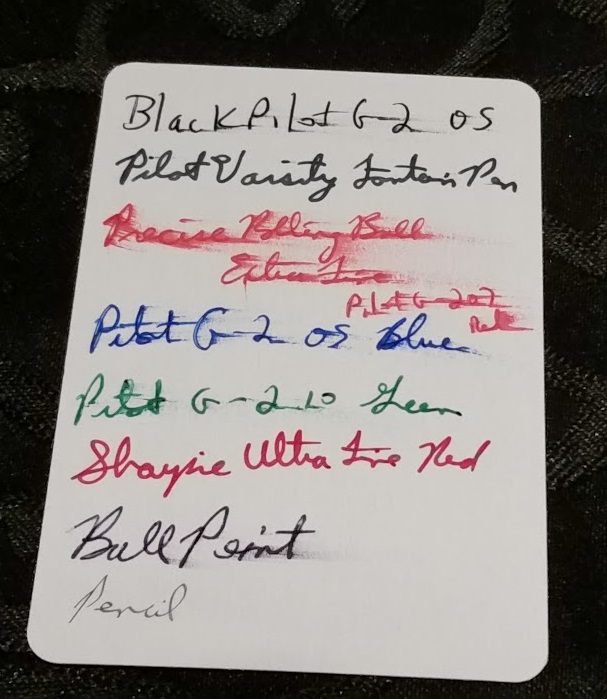 Black Pilot G-2 05
Pilot Varsity Fontain Pen
Precise Rolling Ball
Extra Fine
Pilot G-2 07
Pilot G-2 05 Blue
Pilot G-2 10 Green
Sharpie Ultra Fine Red
Ball Point
Pencil